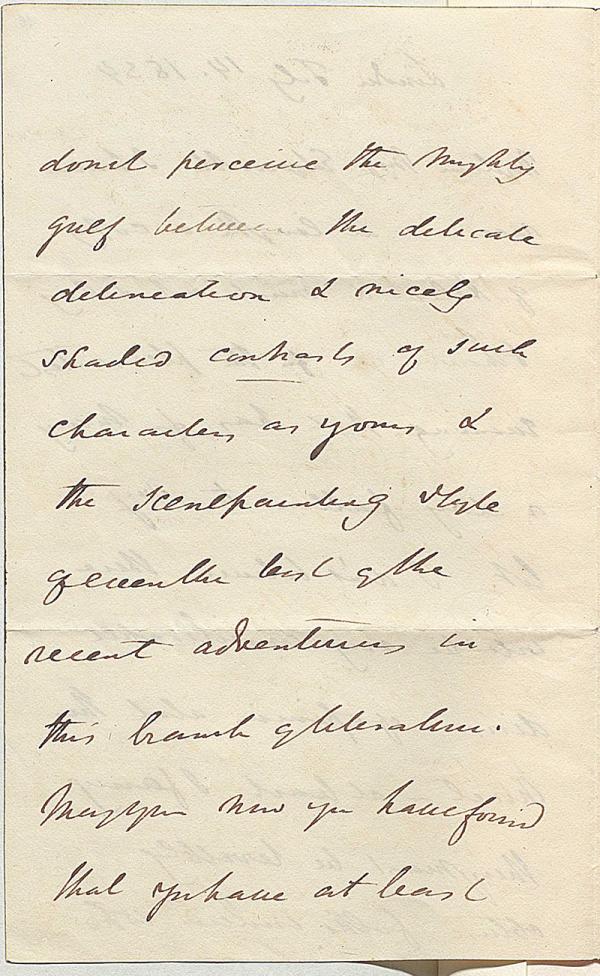 donot perceive the mighty
gulf between the delicate
delineation & nicely
shaded contrasts of such
characters as yours &
the scenepainting style
of even the best of the
recent adventurers in
this branch of literature.
now you have found
that you have at least